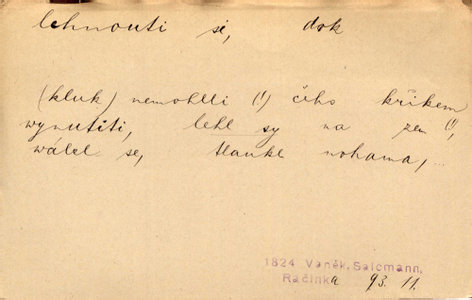 lehnouti se, dok
(kluk) nemohlli (!) čeho křikem
wynutiti, lehl sy na zem (!),
wálel se, tlaukl nohama,...
1824 Vaněk. Salcmann,
Račinka 93. 11.